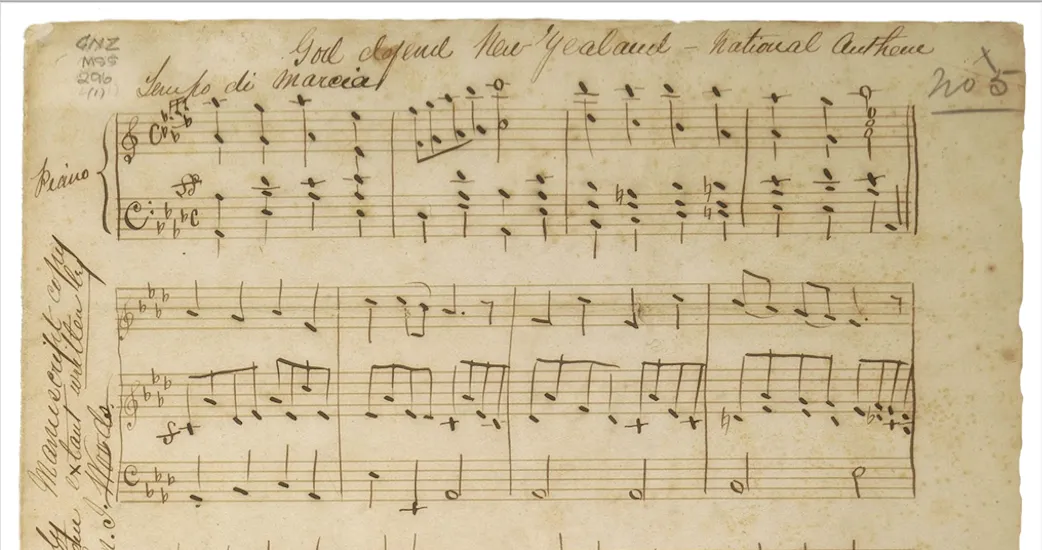 GNZ
MSS
296
(1)
God defend New Zealand – National Anthem
Tempo di Marcia
No 5
Piano
ff
Manuscript copy
extant written by
J. Woods.